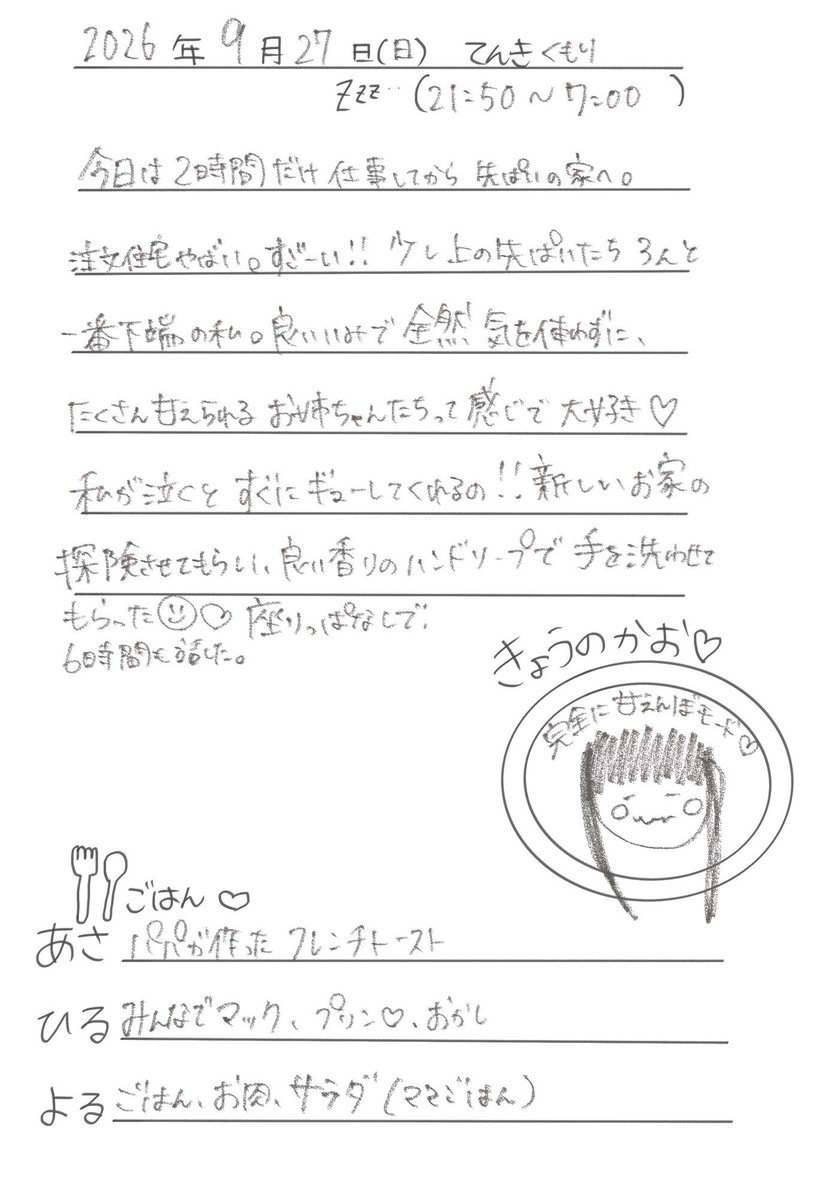 2026年9月27日(日) てんき くもり
Zzz‥(21:50〜7:00 )
今日は2時間だけ仕事してから 先ぱいの家へ。
注文住宅やばい。すごーい!! 少し上の先ぱいたち3人と
一番下端の私。良いいみで全然気を使わずに、
たくさん甘えられるお姉ちゃんたちって感じで大好き♡
私が泣くとすぐにギューしてくれるの!!新しいお家の
探険させてもらい、良い香りのハンドソープで手を洗わせて
もらった☺♡ 座りっぱなしで、
6時間も話した。
きょうのかお♡
完全に甘えんぼモード♡
ごはん♡
あさ パパが作ったフレンチトースト
ひる みんなでマック、プリン♡、おかし
よる ごはん、お肉、サラダ(ママごはん)